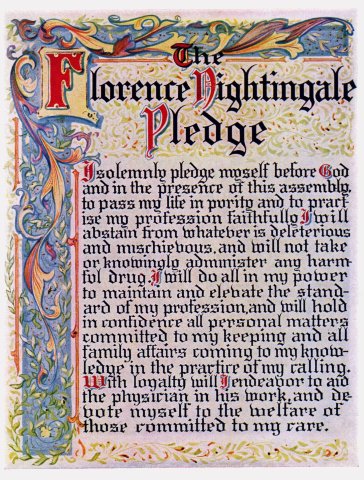 The
Florence Nightingale
Pledge
I solemnly pledge myself before God
and in the presence of this assembly,
to pass my life in purity and to pract-
ise my profession faithfully. I will
abstain from whatever is deleterious
and mischevous, and will not take
or knowingly administer any harm-
ful drug. I will do all in my power
to maintain and elevate the stand-
ard of my profession, and will hold
in confidence all personal matters
committed to my keeping and all
family affairs coming to my know-
ledge in the practice of my calling.
With loyalty will I endeavor to aid
the physician in his work, and de-
vote myself to the welfare of
those committed to my care.